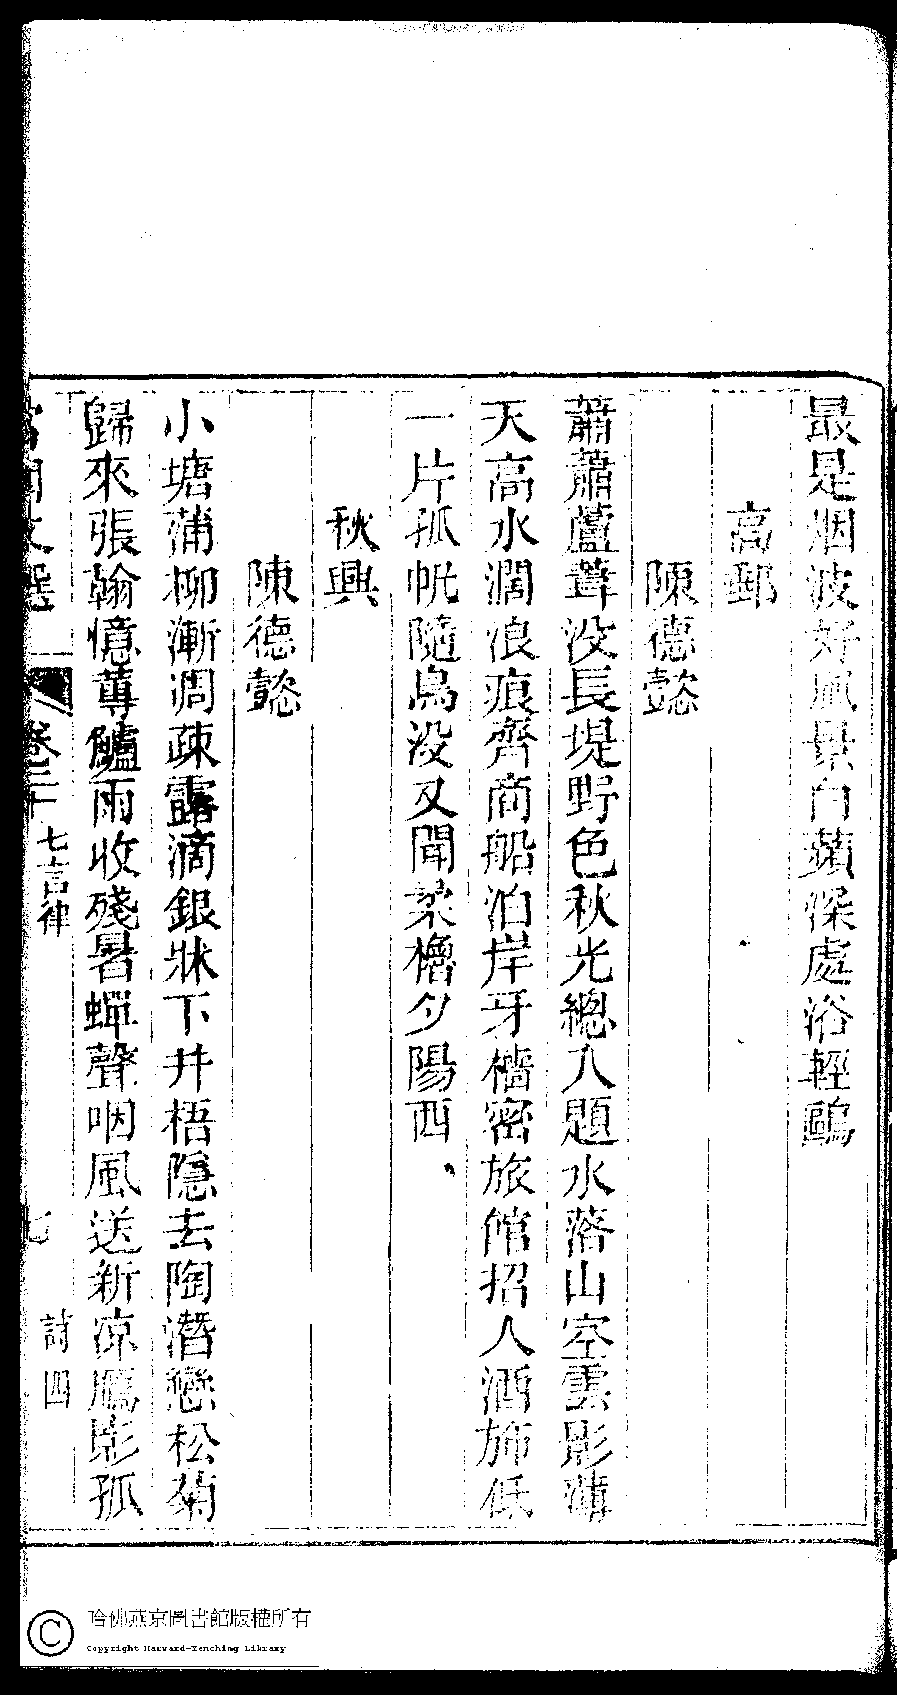 最是烟波好風景白蘋深處浴輕鷗
高郵
陳德懿
蕭蕭蘆葦没長堤野色秋光總入題水落山空雲影薄
天高水濶浪痕齊商船泊岸牙檣密旅館招人酒斾低
一片孤帆隨鳥没又聞柔櫓夕陽西
秋興
陳德懿
小塘蒲柳漸凋疎露滴銀牀下井梧隱去陶潛戀松菊
歸來張翰憶蓴鱸雨收殘暑蟬聲咽風送新凉鴈影孤
卷二十
七言律
七
詩四
哈佛燕京圖書館版權所有
Copyright Harvard-Yenching Library